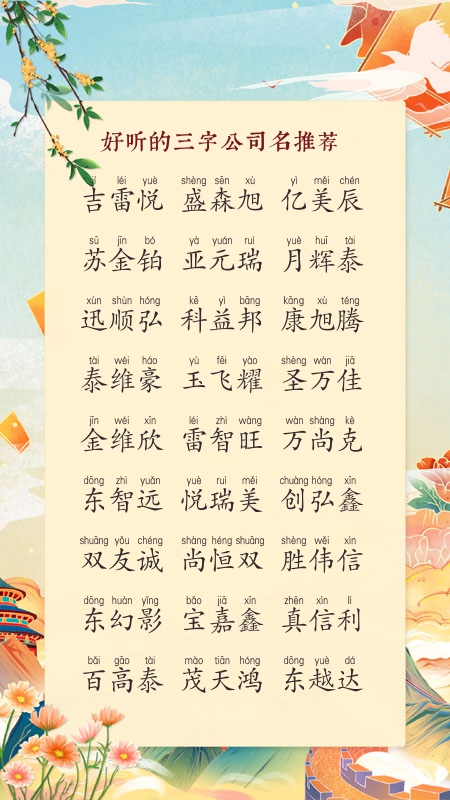 好听的三字公司名推荐
léi yuè shèng sēn xù yì měi chén
吉雷悦 盛森旭 亿美辰
sū jīn bó yà yuán ruì yuè huī tài
苏金铂 亚元瑞 月辉泰
xùn shùn hóng kē yì bāng kāng xù téng
迅顺弘 科益邦 康旭腾
tài wéi háo yù fēi yào shèng wàn jiā
泰维豪 玉飞耀 圣万佳
jīn wéi xīn léi zhì wàng wàn shàng kè
金维欣 雷智旺 万尚克
dōng zhì yuǎn yuè ruì měi chuàng hóng xīn
东智远 悦瑞美 创弘鑫
shuāng yǒu chéng shàng héng shuāng shèng wěi xìn
双友诚 尚恒双 胜伟信
dōng huàn yǐng bǎo jiā xīn zhēn xìn lì
东幻影 宝嘉鑫 真信利
bǎi gāo tài mào tiān hóng dōng yuè dá
百高泰 茂天鸿 东越达